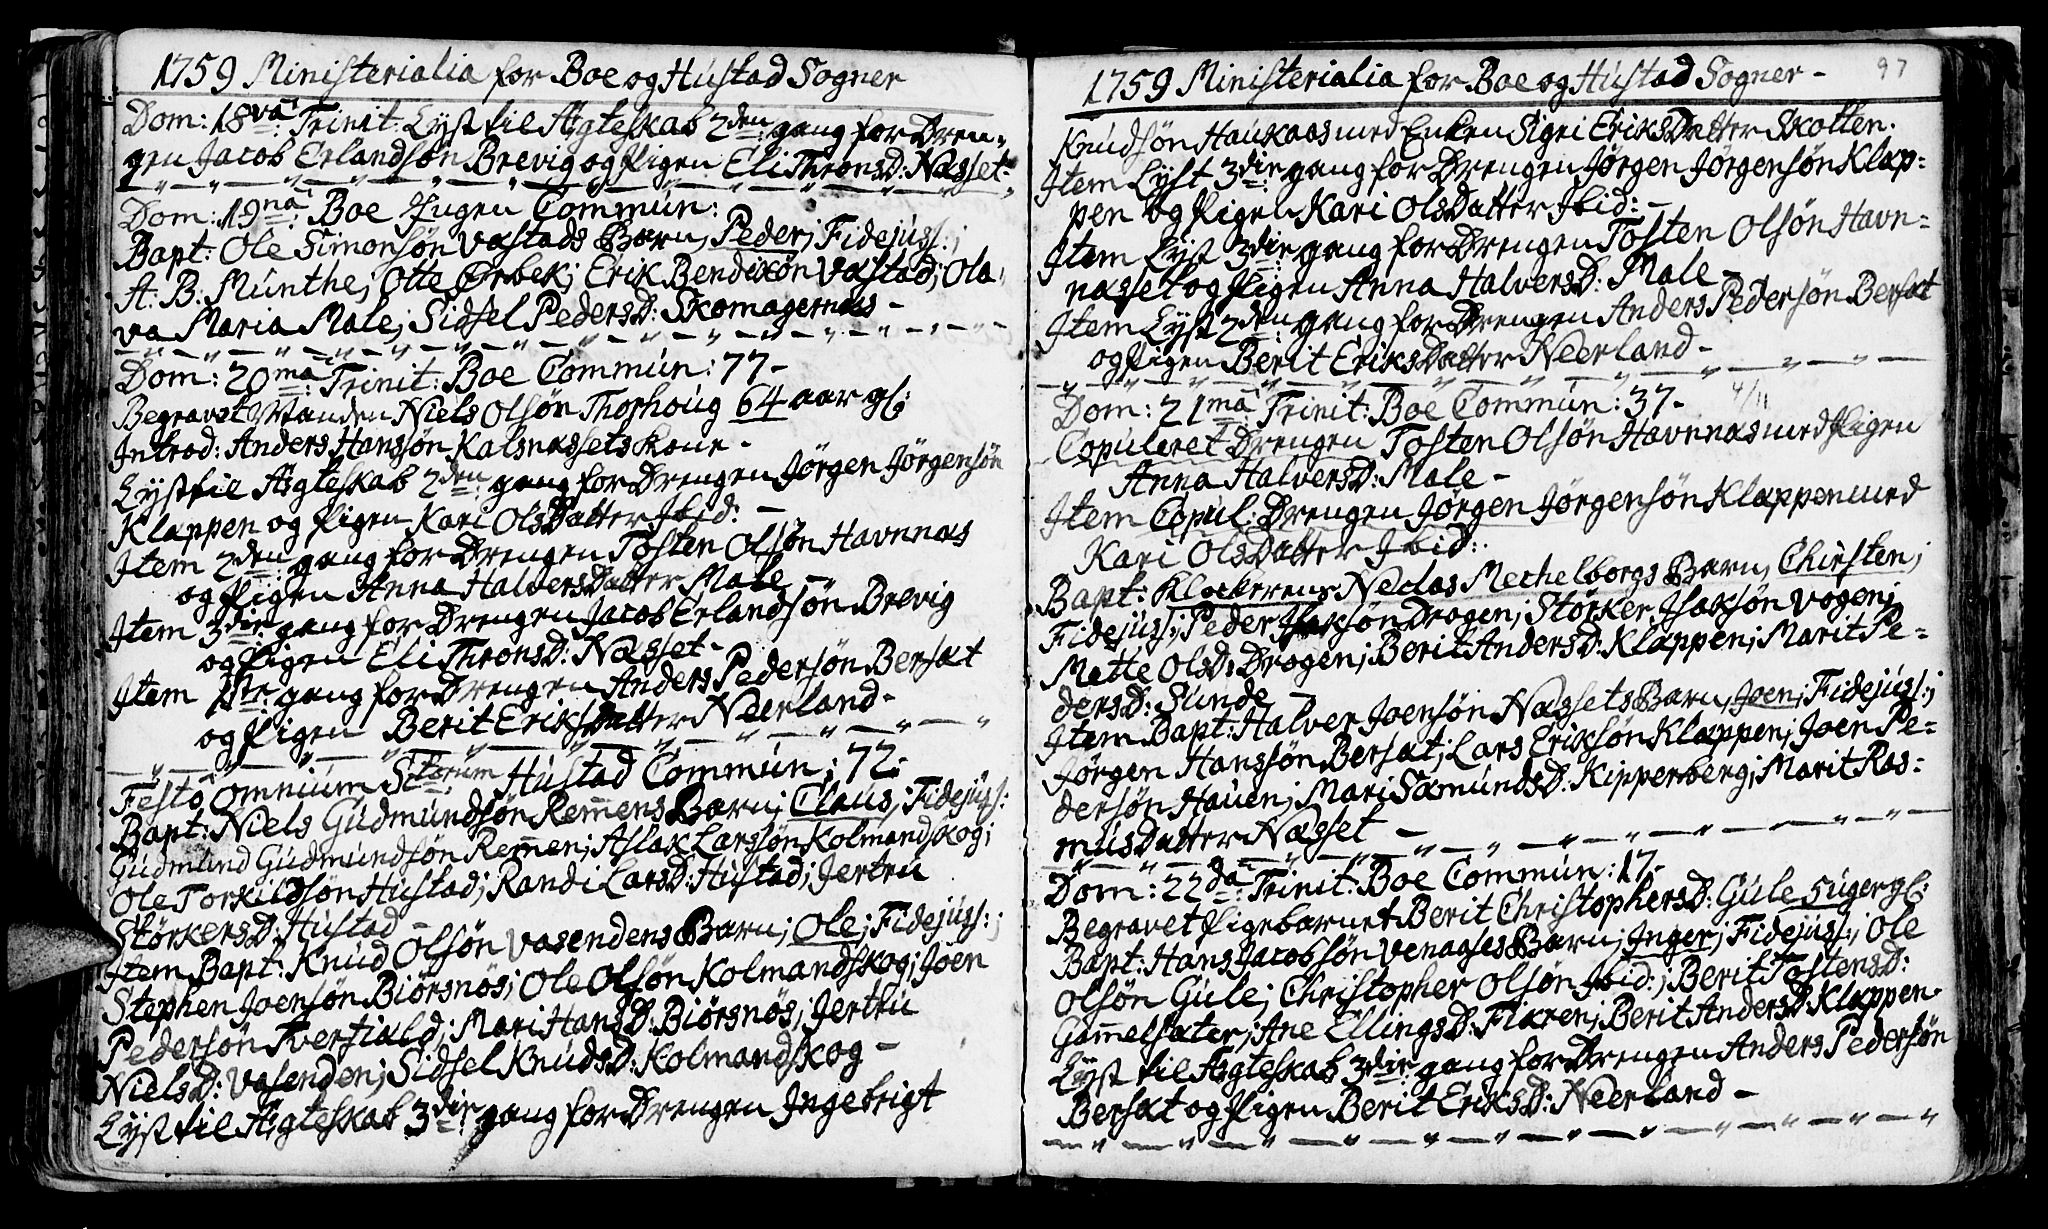 1759 Ministerialia for Boe og Hustad Sogner
Dom: 18va: Trinit: Lyst til Ægteskab 2den: gang for Dren-
gen Jacob Erlandsøn Brevig og Pigen Eli ThronsD: Næsset-
Dom: 19na: Boe Ingen Commun:
Bapt: Ole Simonsøn Vastads Barn, Peder; Fidejuss:;
A: B: Munthe; Otte Ørbek; Erik Bendixøn Vastad; Ola-
va Maria Male; Sidsel PedersD: Skomagernæs -
Dom: 20ma: Trinit: Boe Commun: 77-
Begravet Manden Niels Olsøn Thorhoug 64 aar gl:
Introd: Anders Hansøn Kalsnæssets Kone -
Lyst til Ægteskab 2den: gang for Drengen Jørgen Jørgensøn
Klappen og Pigen Kari OlsDatter Ibid: -
Item 2den: gang for Drengen Tosten Olsøn Havnnæs
og Pigen Anna HalversDatter Male -
Item 3die: gang for Drengen Jacob Erlandsøn Brevig
og Pigen Eli ThronsD: Næsset -
Item 1ste: gang for Drengen Anders Pedersøn Bersæt
og Pigen Berit EriksDatter Neerland -
Festo omnium Storum Hustad Commun: 72:
Bapt: Niels Gudmundsøn Remmens Barn; Claus; Fidejuss:
Gudmund Gudmundsøn Remmen; Aslak Larssøn Kolmandskog;
Ole Torkildsøn Hustad; Randi LarsD: Hustad; Jertru
StørkersD: Hustad -
Item Bapt: Knud Olsøn Vasendens Barn; Ole; Fidejuss:;
Stephen Joensøn Biørsnøs; Ole Olsøn Kolmandskog; Joen
Pedersøn Tverfiæld; Mari HansD: Biørsnøs; Jertru
NielsD: Vasenden; Sidsel KnudsD: Kolmandskog -
Lyst til Ægteskab 3die: gang for Drengen Ingebrigt
1759 Ministerialia for Boe og Hustad Sogner - 97
Knudsøn Haukaas med Enken Sigri EriksDatter Skotten.
Item Lyst 3die: gang for Drengen Jørgen Jørgensøn Klap-
pen og Pigen Kari OlsDatter Ibid: -
Item Lyst 3die: gang for Drengen Tosten Olsøn Havn-
næsset og Pigen Anna HalversD: Male -
Item Lyst 2den: gang for Drengen Anders Pedersøn Bersæt
og Pigen Berit EriksDatter Neerland -
Dom: 21ma: Trinit: Boe Commun: 37- 4/11
Copuleret Drengen Tosten Olsøn Havnnæs med Pigen
Anna HalversD: Male -
Item Copul: Drengen Jørgen Jørgensøn Klappen med
Kari OlsDatter Ibid:
Bapt: Klockerens Niclas Mechelborgs Barn, Chirsten;
Fidejuss:; Peder Isaksøn Drogen; Størker Isaksøn Vogen;
Mette OlsD: Drogen; Berit AndersD: Klappen; Marit Pe-
dersD: Sunde -
Item Bapt: Halver Joensøn Næssets Barn, Joen; Fidejuss:;
Jørgen Hanssøn Bersæt; Lars Eriksøn Klappen; Joen Pe-
dersøn Hauen; Mari SæmundsD: Kipperberg; Marit Ras-
musDatter Næsset -
Dom: 22da: Trinit: Boe Commun: 17-
Begravet Pigebarnet Berit ChristophersD: Gule 5 uger gl:
Bapt: Hans Jacobsøn Venaases Barn; Inger; Fidejuss:; Ole
Olsøn Gule; Christopher Olsøn Ibid:; Berit TostensD:
Gammelsæter; Ane EllingsD: Fiæren; Berit AndersD: Klappen.
Lyst til Ægteskab 3die: gang for Drengen Anders Pedersøn
Bersæt og Pigen Berit EriksD: Neerland -